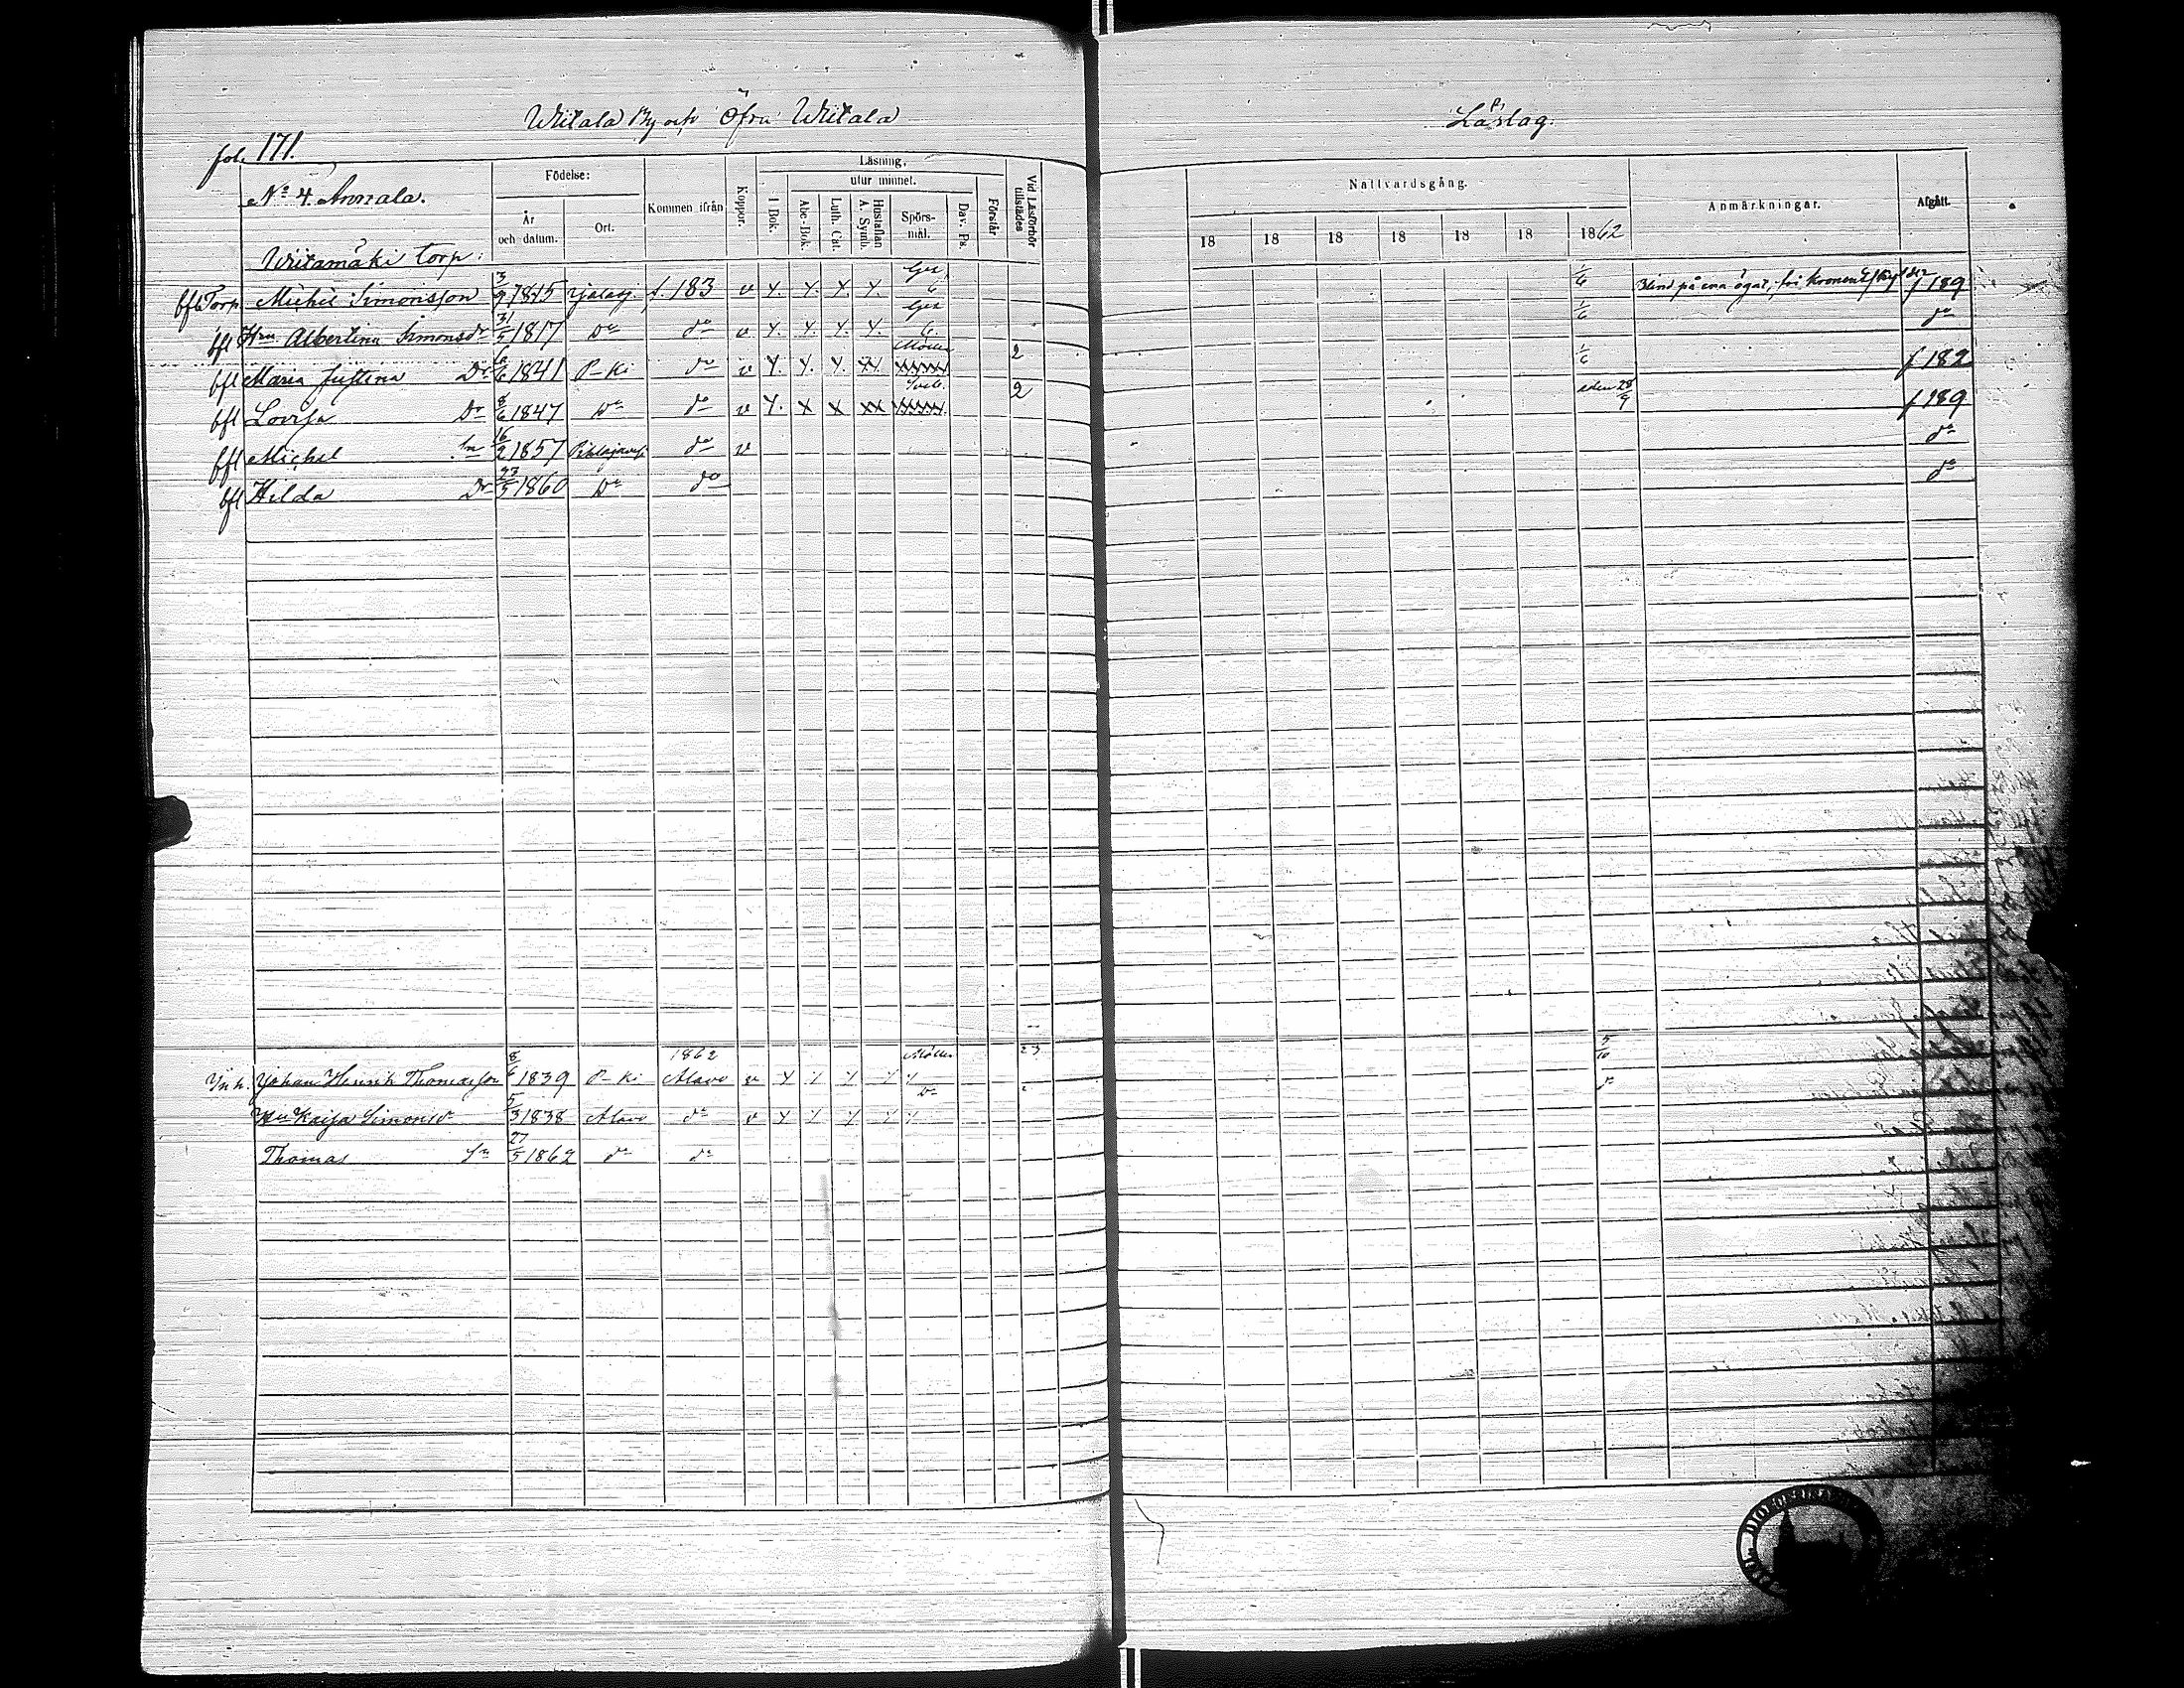 Wiitala By och Öfre Wiitala
Låslag.
fol. 171.
No 4. Annala.
Födelse:
År och datum.
Ort.
Kommen ifrån
Koppor.
Läsning,
I Bok.
utur minnet.
Abc-Bok.
Luth. Cat.
Hustaflan A. Symb.
Spörs-mål.
Dav. Ps.
Förstår
Vid Läsförhör tillstädes
Nattvardsgång.
18 18 18 18 18 18 1862
Anmärkningar.
Afgått.
Wiitamäki torp:
Torp. Michel Simonsson 3/9 1815 f. 183 v Y. Y. Y. Y. 1/6 Blind på ena ögat, f 189
Hu Albertina Simonsdr 31/5 1817 Do do v Y. Y. Y. Y. 1/6 do
Maria Justina Dr 6/6 1841 P-ki do v Y. Y. Y. XX 2 1/6 f 182
Lovisa Dr 8/6 1847 Do do v Y. X X XX 2 28/9 f 189
Michel Sn 16/2 1857 do v do
Hilda Dr 23/5 1860 Do do do
Inh. Johan Henrik Thomasson 8/6 1839 P-ki 1862 Alavo v 23 5/10
Hu Kaisa Simonsdr 5/3 1838 Alavo do v do
Thomas Sn 27/5 1862 do do